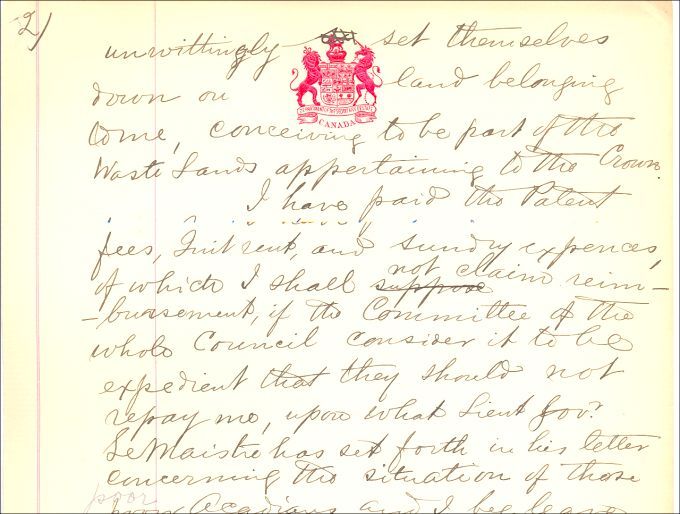 2)
unwittingly set themselves
down on land belonging
to me, conceiving to be part of the
Waste Lands appertaining to the Crown.
I have paid the Patent
fees, Quit rent, and sundry expences,
of which I shall suppose not claim reim-
-bursement, if the Committee of the
whole Council consider it to be
expedient that they should not
repay me, upon what Lieut Gov?
LeMaistre has set forth in his letter
concerning the situation of those
poor
poor Acadians and I beg leave
CANADA